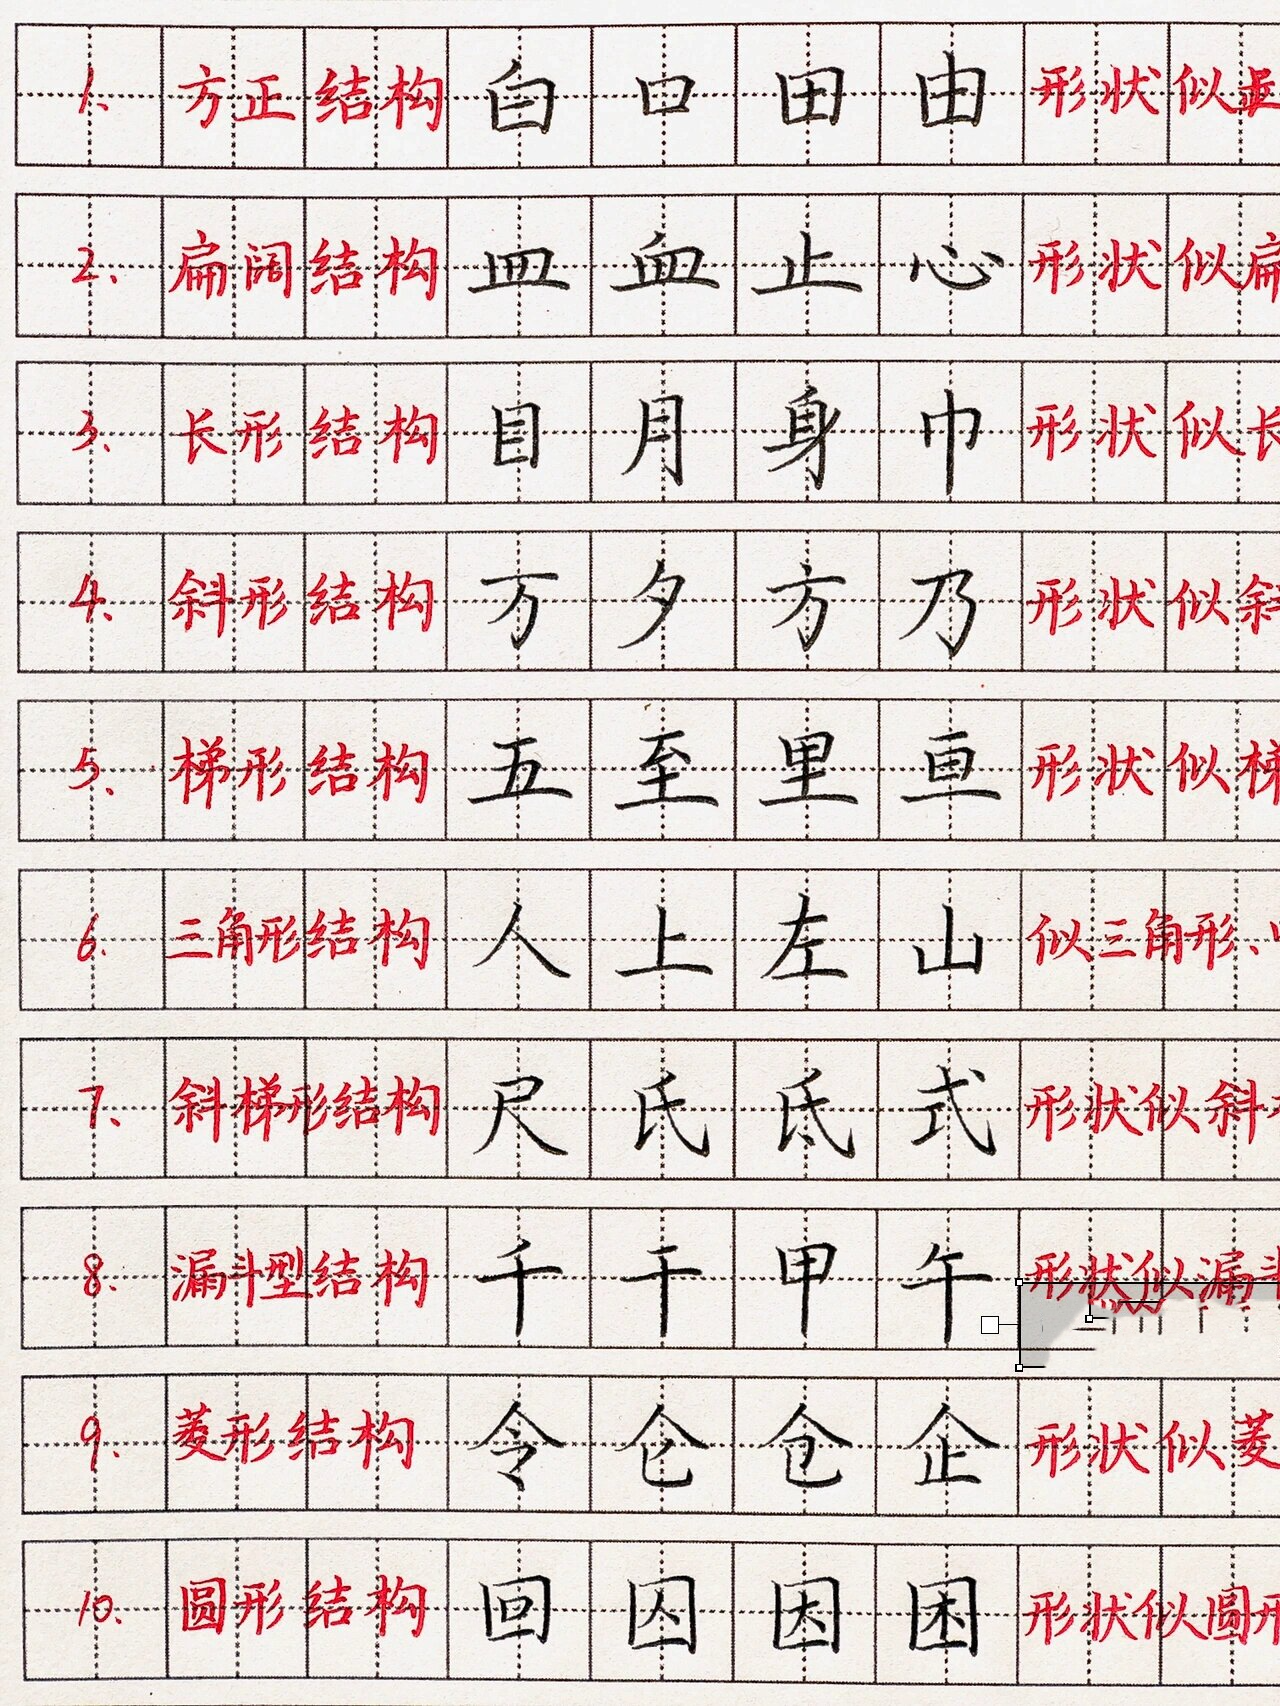 1、方正结构 白 口 田 由 形状似
2、扁阔结构 皿 血 止 心 形状似扁
3、长形结构 目 月 身 巾 形状似长
4、斜形结构 万 夕 方 乃 形状似斜
5、梯形结构 五 至 里 亘 形状似梯
6、三角形结构 人 上 左 山 似三角形、
7、斜梯形结构 尺 氏 氐 式 形状似斜
8、漏斗型结构 千 干 甲 午 形状似漏斗
9、菱形结构 令 仑 仓 企 形状似菱
10、圆形结构 回 囚 因 困 形状似圆形